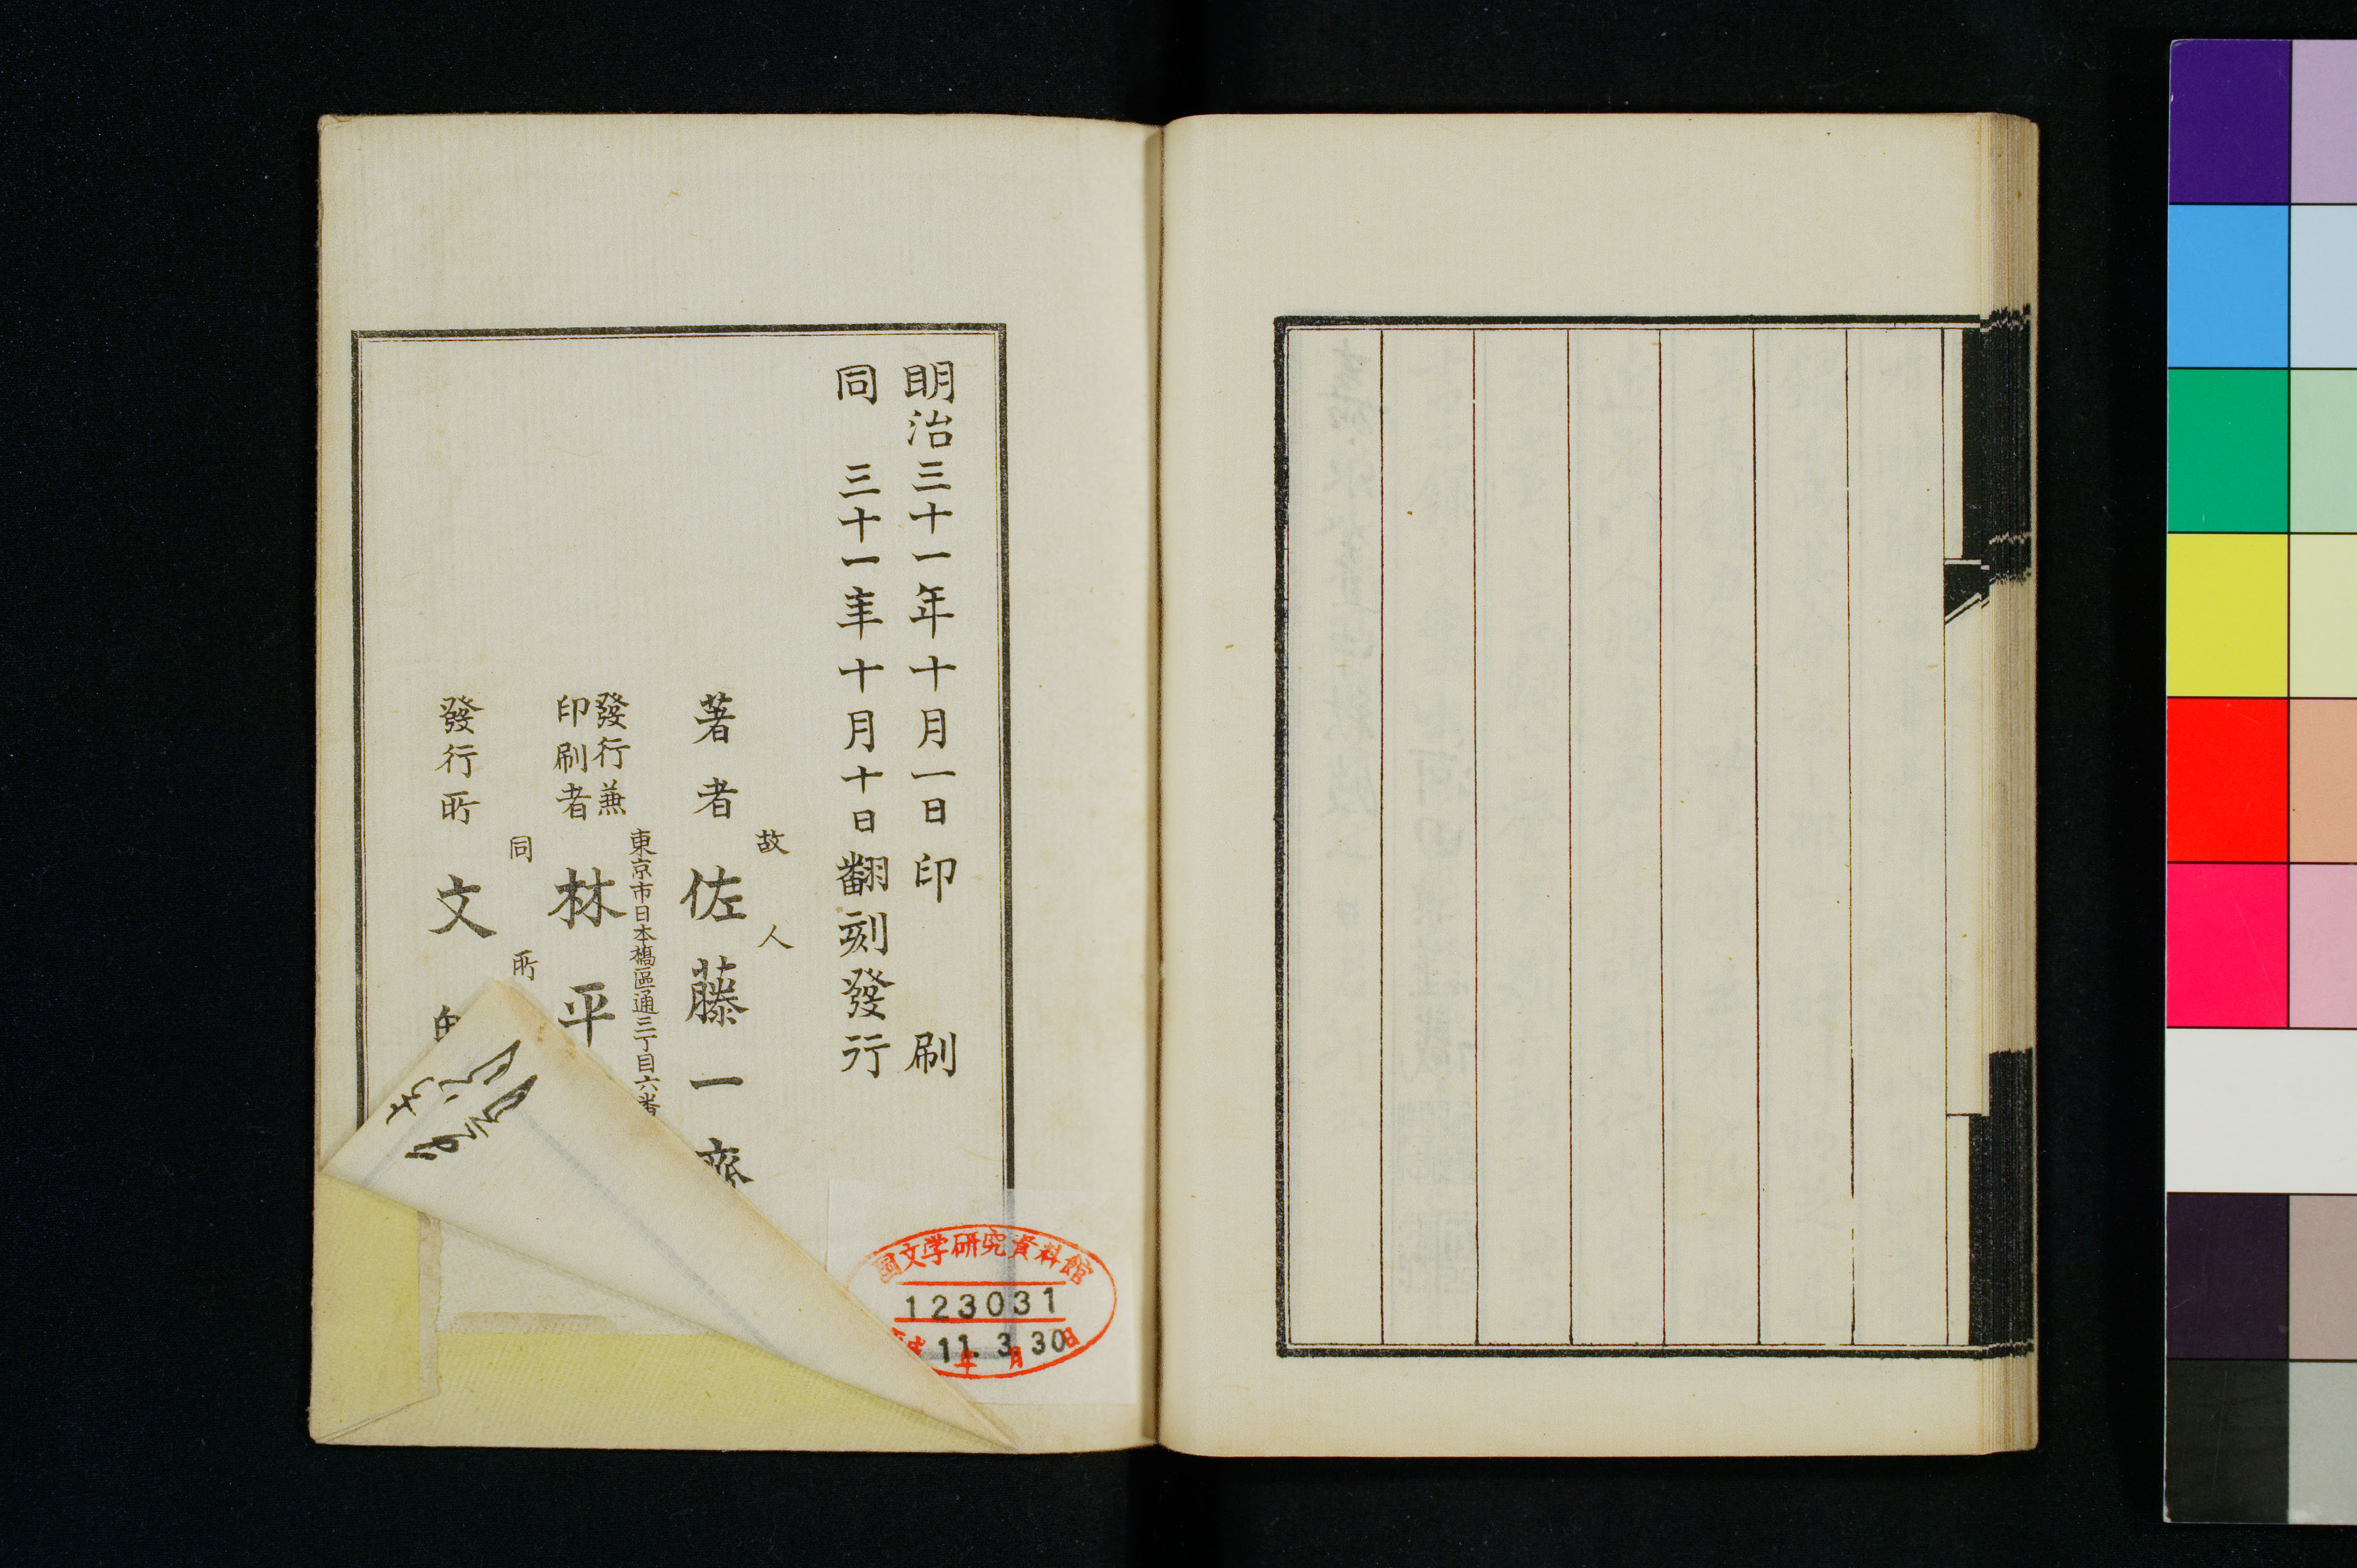 明治三十一年十月一日印刷
同三十一年十月十日翻刻發行
故人
著者佐藤一齋
東京市日本橋區通三丁目六番
發行兼
印刷者
林平
同所
發行所文
國文学研究資料館
123031
11年3月30日